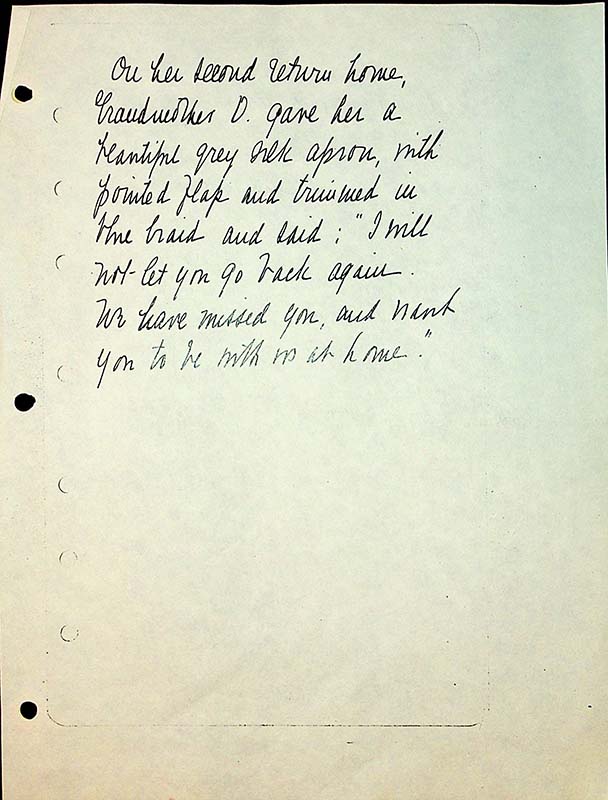 On her second return home,
Grandmother O. gave her a
beautiful grey silk apron, with
pointed flap and trimmed in
blue braid and said: "I will
not let you go back again.
We have missed you, and want
you to be with us at home."